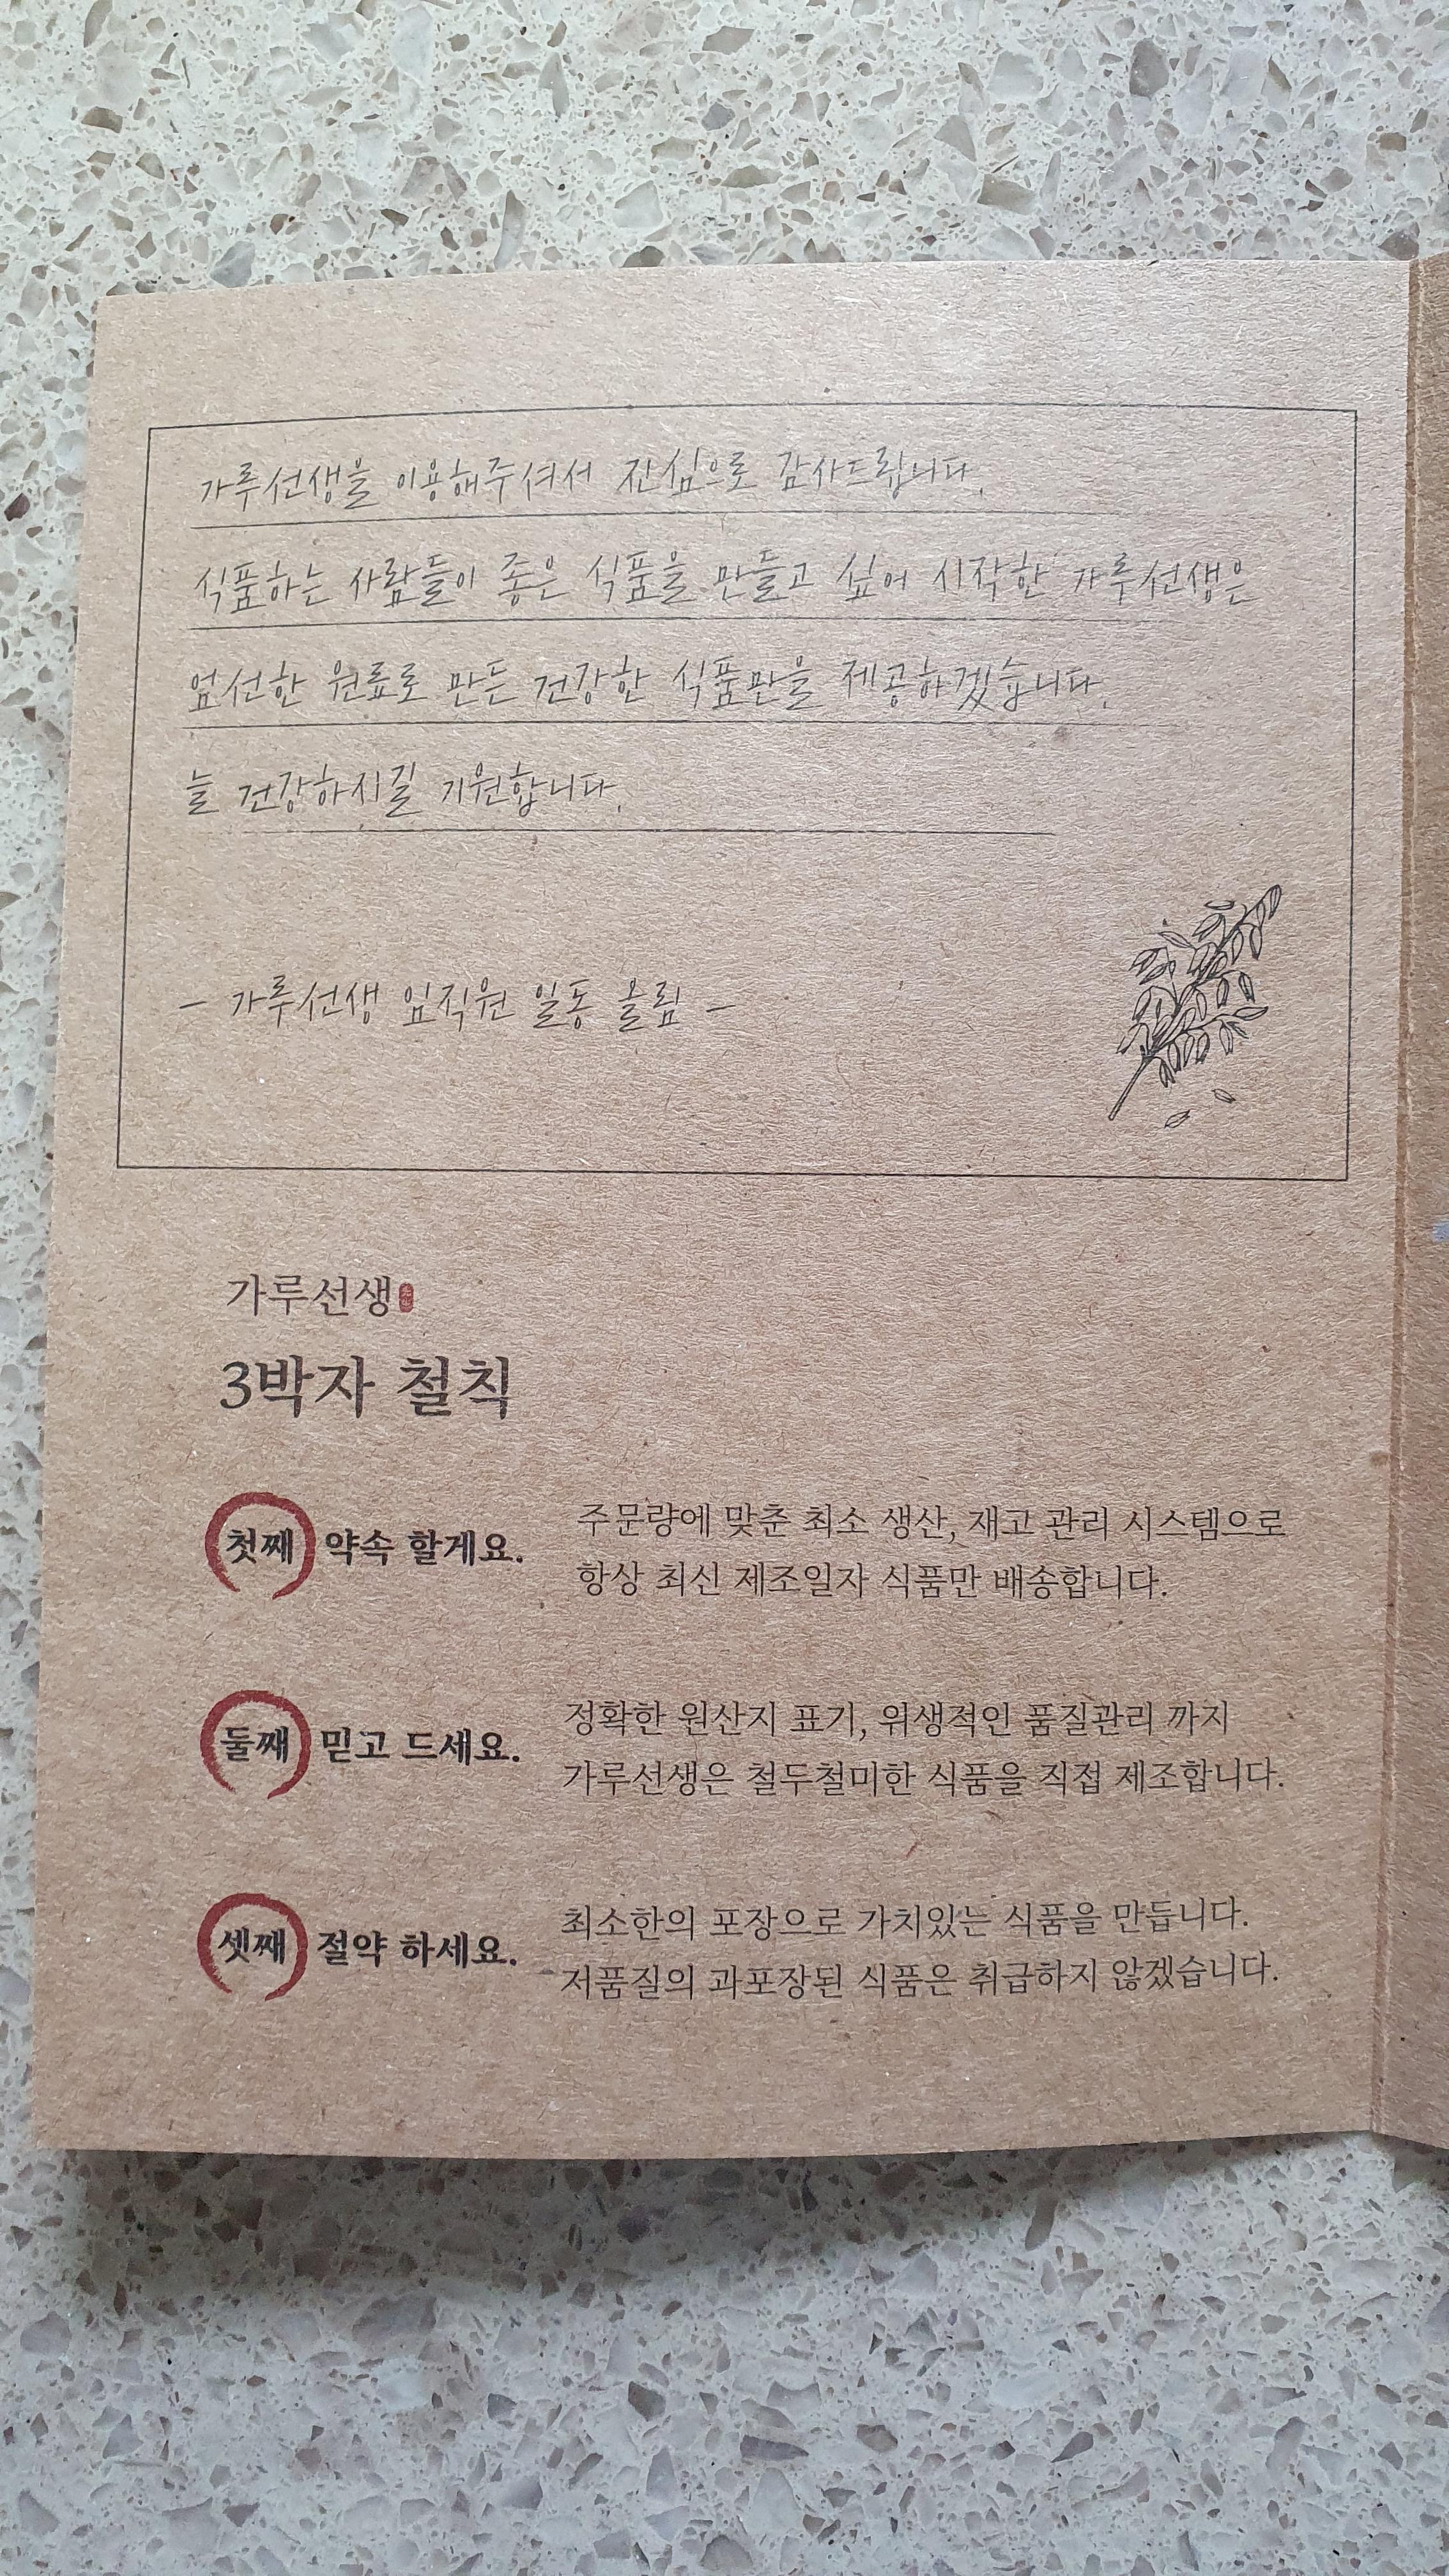 가루선생을 이용해주셔서 진심으로 감사드립니다.
식품하는 사람들이 좋은 식품을 만들고 싶어 시작한 가루선생은
엄선한 원료로 만든 건강한 식품만을 제공하겠습니다.
늘 건강하시길 기원합니다.
- 가루선생 임직원 일동 올림 -
가루선생
3박자 철칙
첫째 약속 할게요.
주문량에 맞춘 최소 생산, 재고 관리 시스템으로
항상 최신 제조일자 식품만 배송합니다.
둘째 믿고 드세요.
정확한 원산지 표기, 위생적인 품질관리 까지
가루선생은 철두철미한 식품을 직접 제조합니다.
셋째 절약 하세요.
최소한의 포장으로 가치있는 식품을 만듭니다.
저품질의 과포장된 식품은 취급하지 않겠습니다.